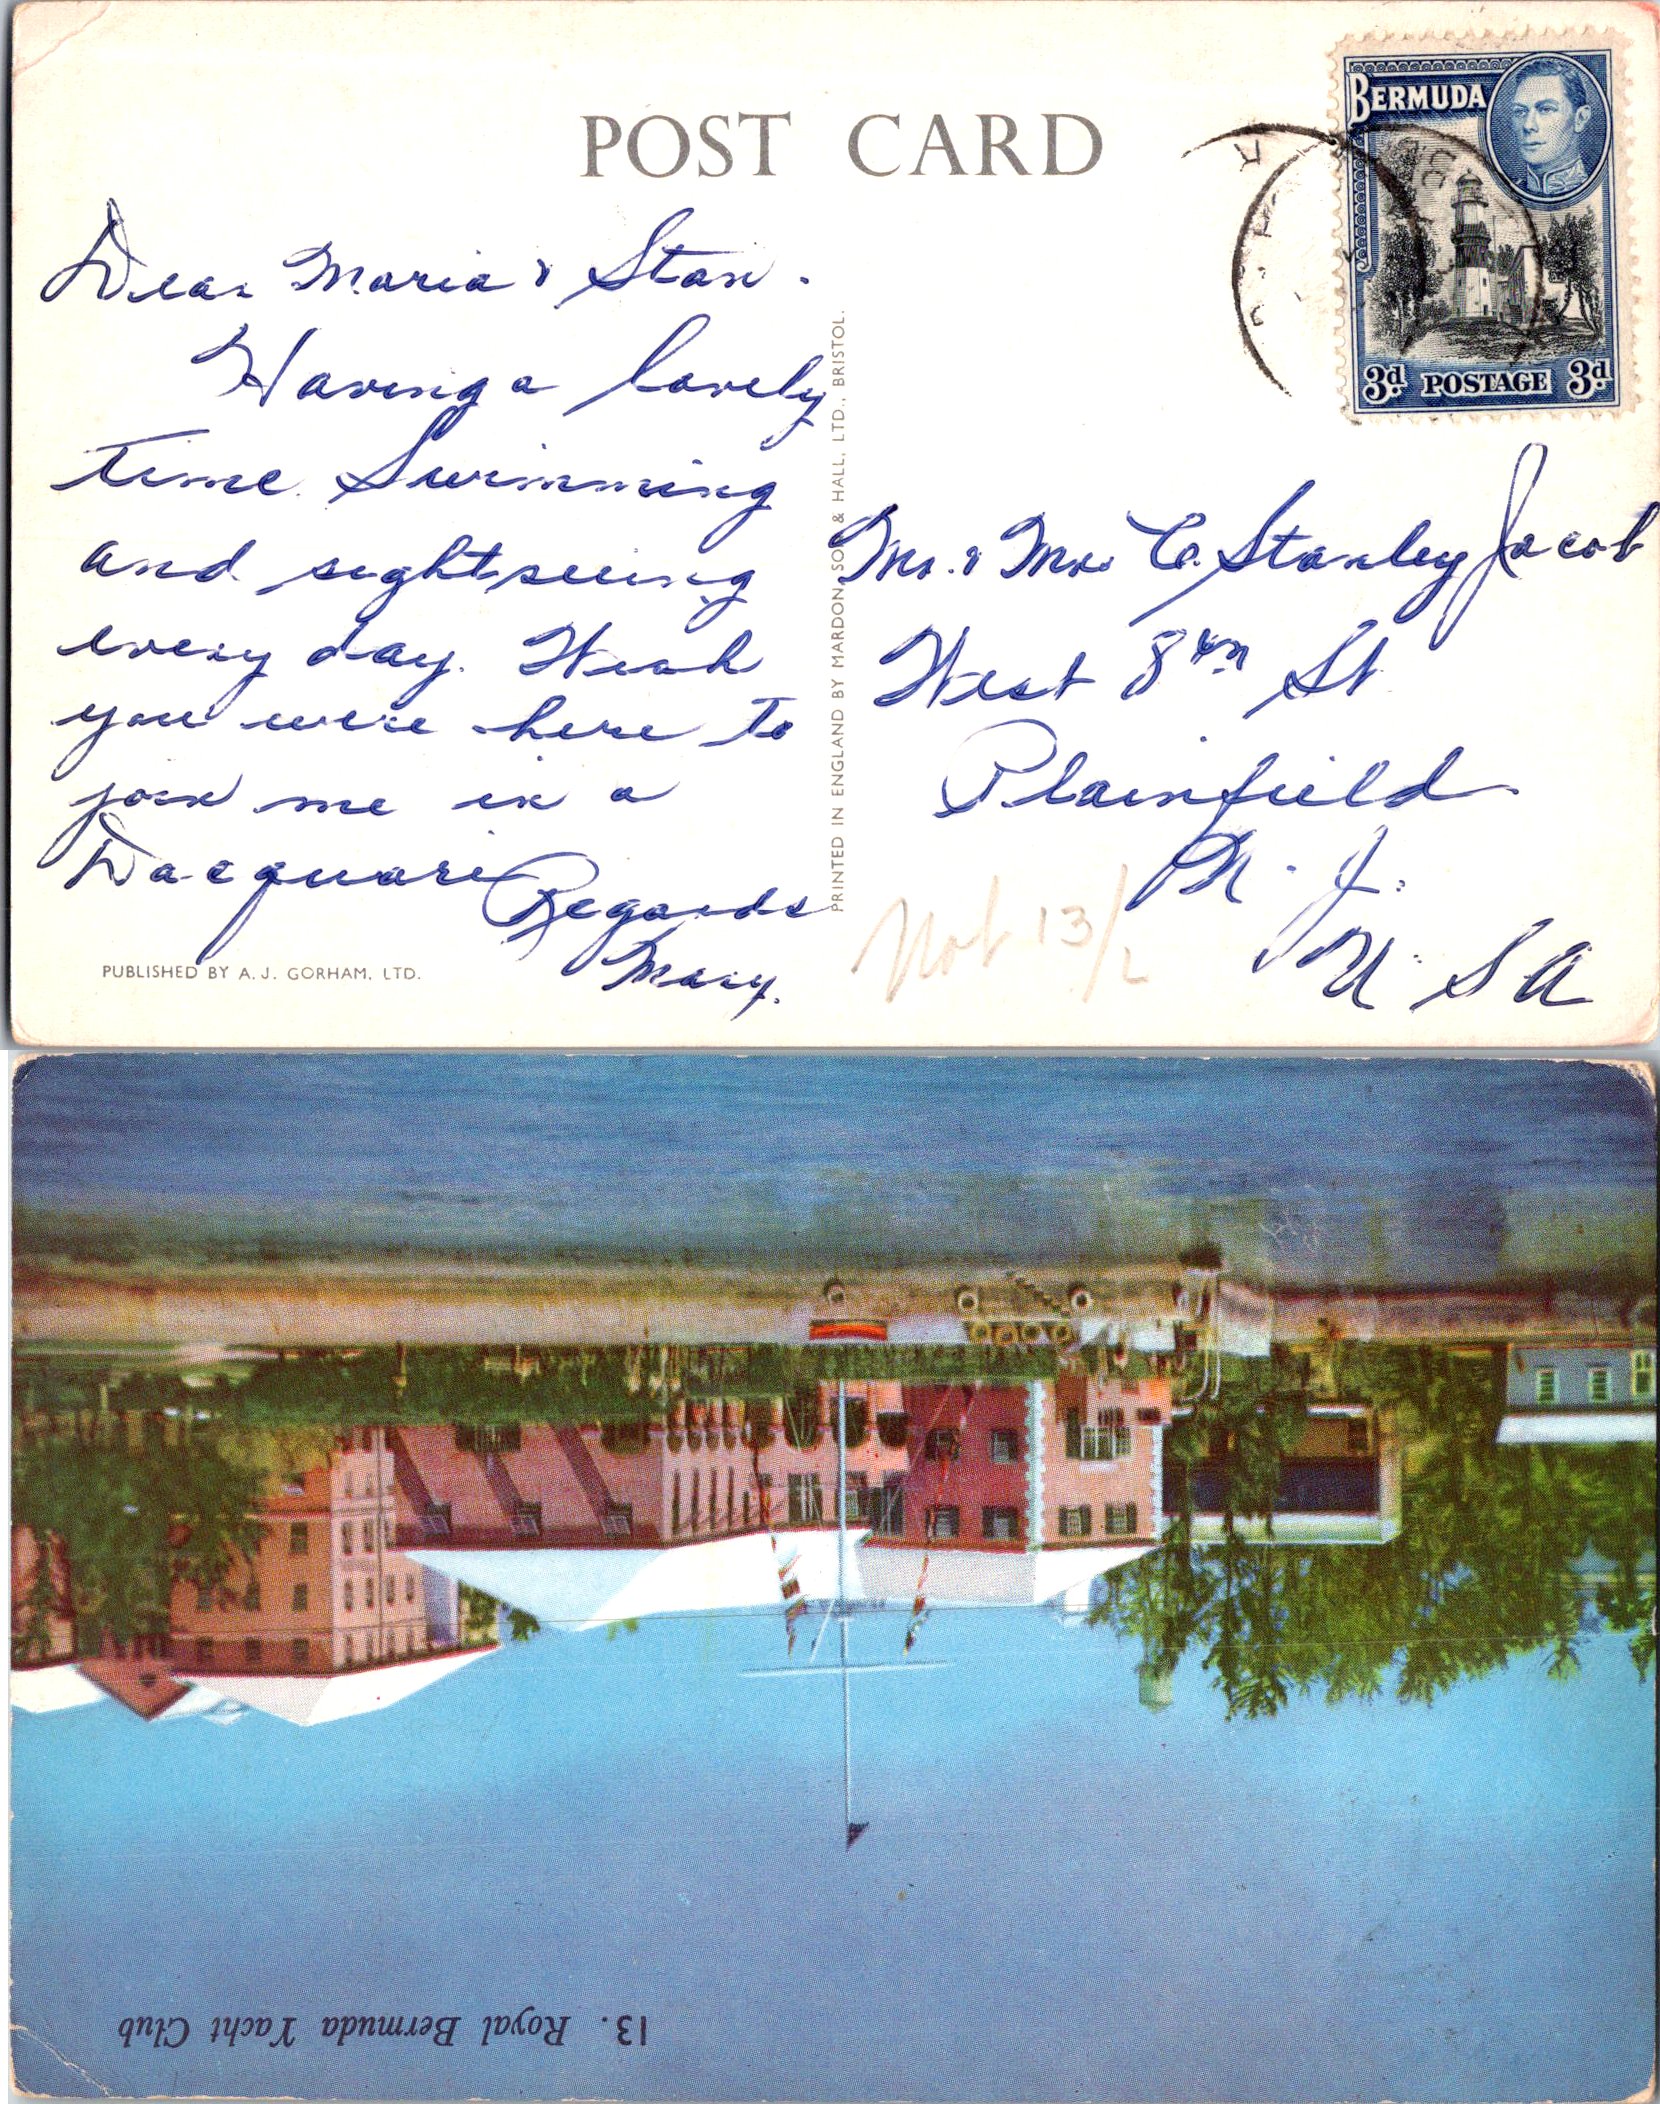 POST CARD
BERMUDA
3d POSTAGE 3d
Dear Maria & Stan.
Having a lovely
time. Swimming
and sightseeing
every day. Wish
you were here to
join me in a
Dacquari
Regards
Mary.
PUBLISHED BY A. J. GORHAM, LTD.
PRINTED IN ENGLAND BY MARDON, SON & HALL, LTD., BRISTOL.
Mr. & Mrs C. Stanley Jacob
West 8th St
Plainfield
N. J.
U. S A
13/2
13. Royal Bermuda Yacht Club